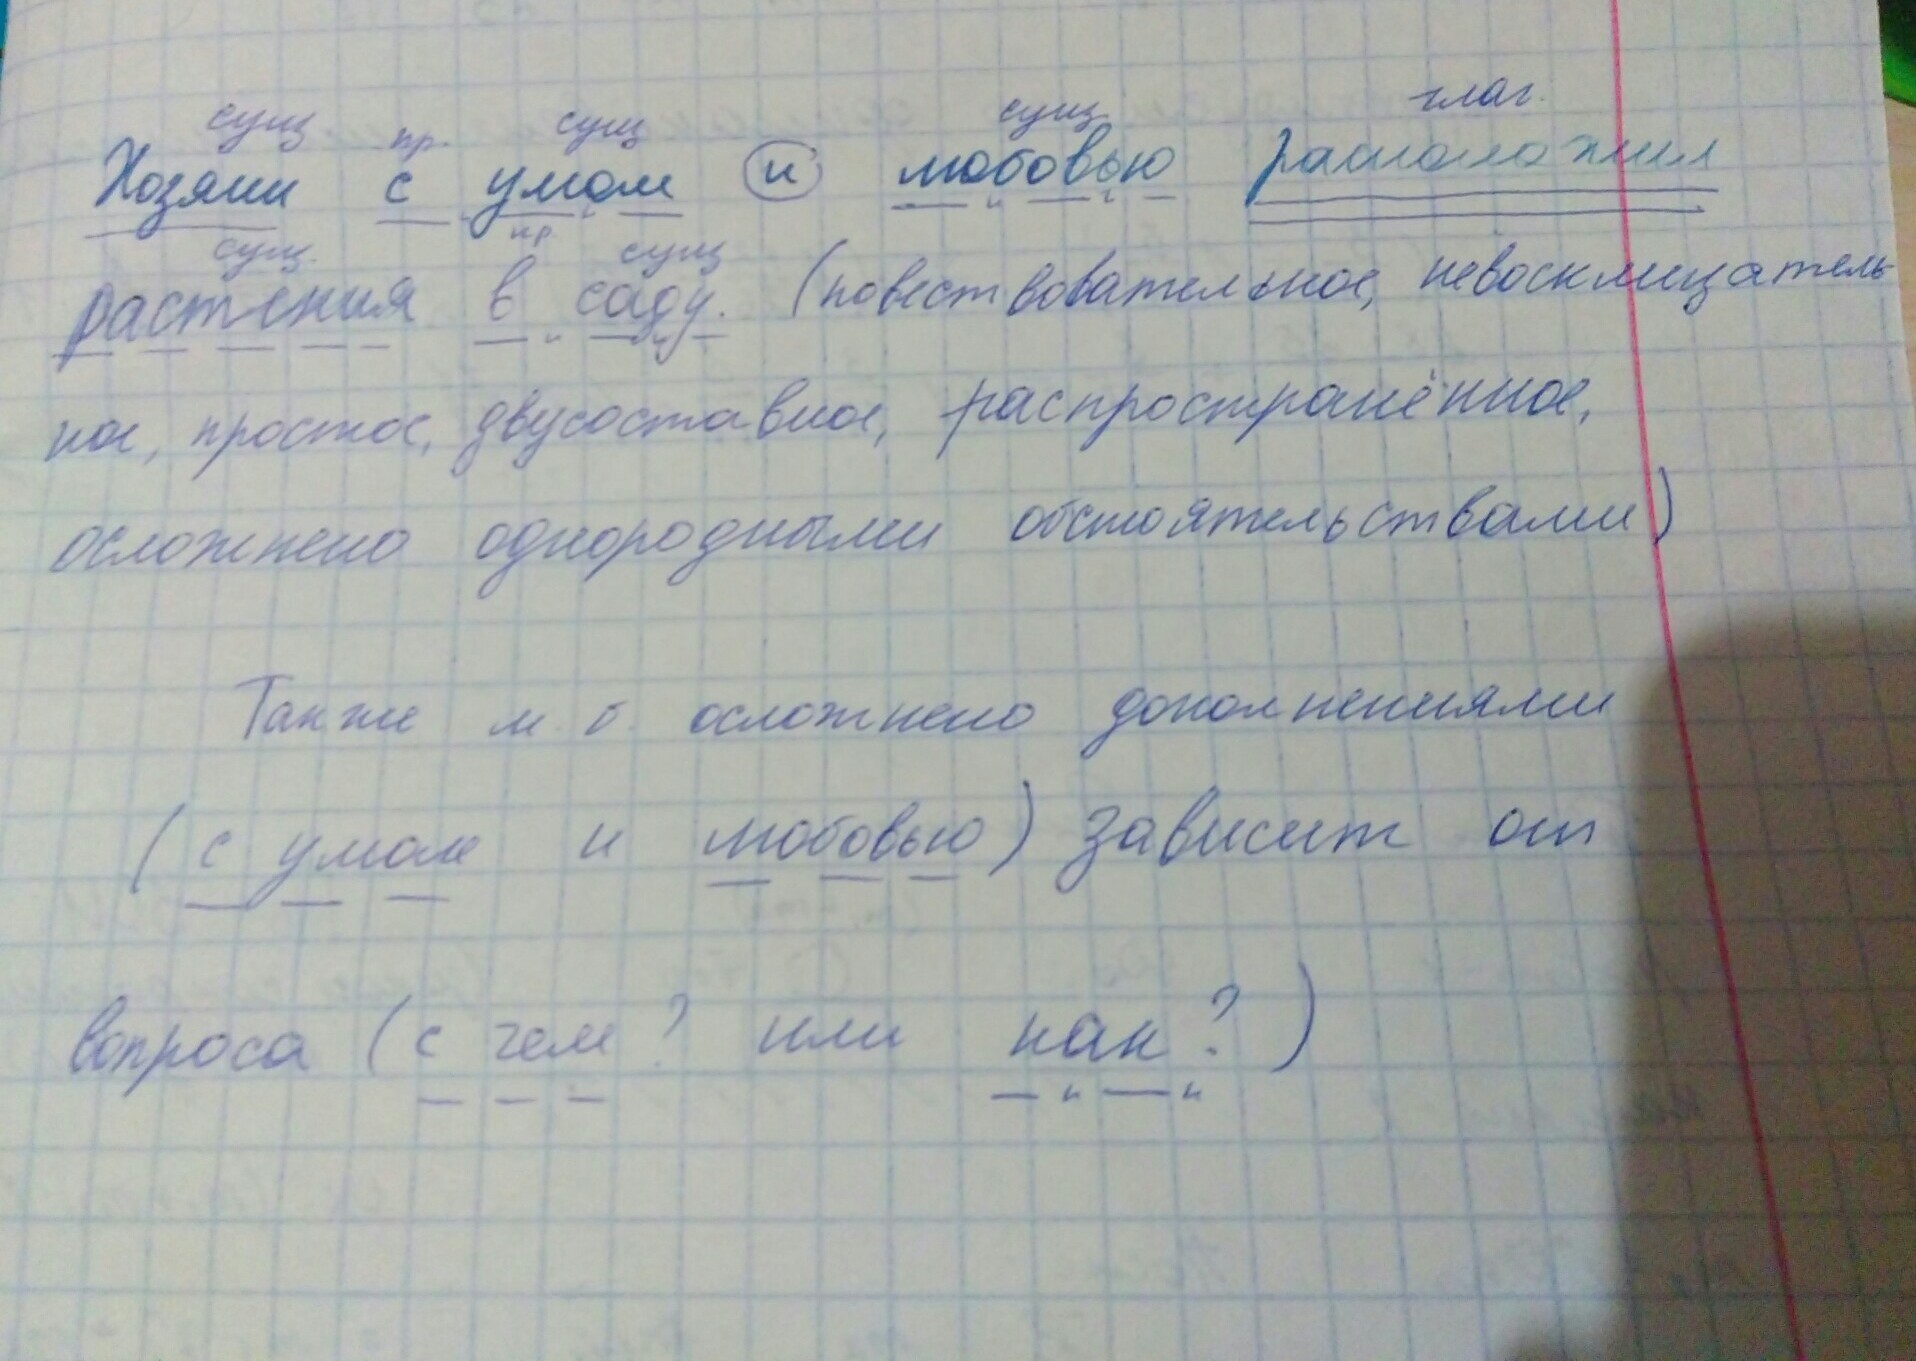 сущ пр. сущ сущ глаг.
Хозяин с умом и любовью расположил
сущ. пр сущ
растения в саду. (повествовательное, невосклицатель
ное, простое, двусоставное, распространённое,
осложнено однородными обстоятельствами)
Также м. б. осложнено дополнениями
(с умом и любовью) зависит от
вопроса (с чем? или как?)